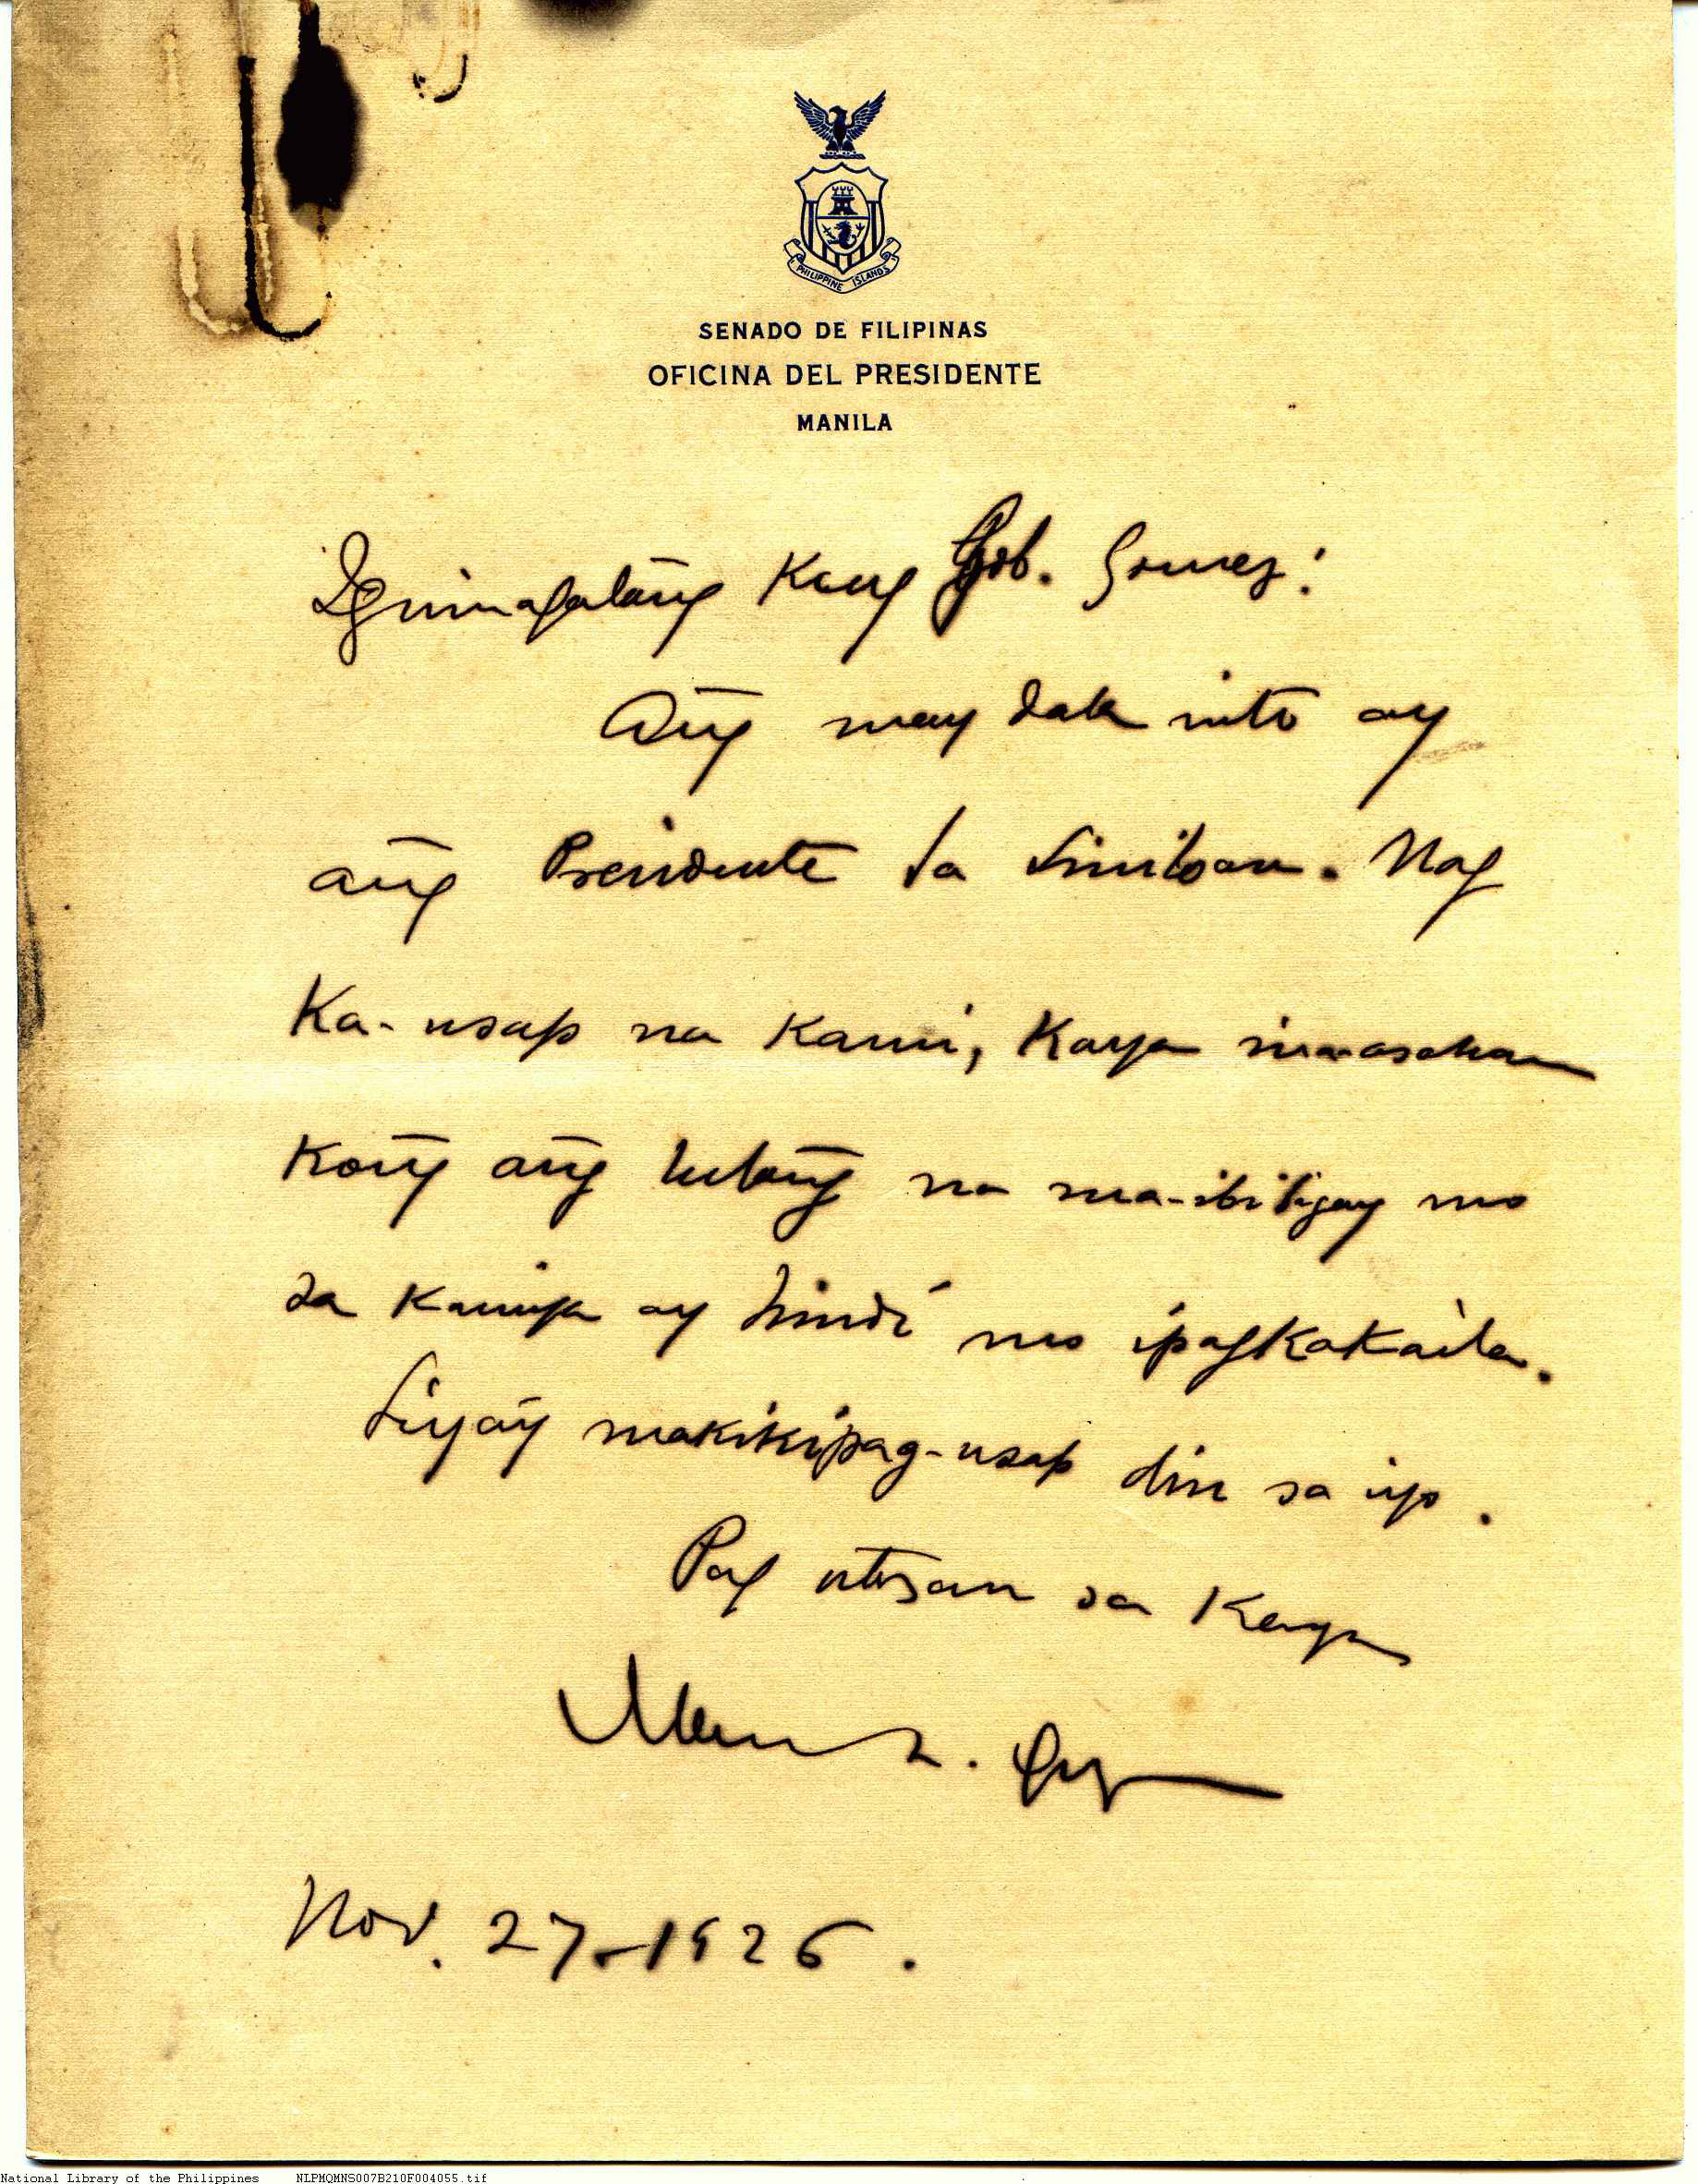 PHILIPPINE ISLANDS
SENADO DE FILIPINAS
OFICINA DEL PRESIDENTE
MANILA
Iguinagalang̃ Kong Gob. Gomez:
Ang̃ may dala nito ay
ang̃ Presidente sa Siniloan. Nag
Ka-usap na Kami, Kaya inaasahan
Kong̃ ang̃ tulong̃ na ma-ibibigay mo
sa Kaniya ay hindí mo ipagkakaila.
Siyay makikipag-usap din sa iyo.
Pag utusan sa Kaya
Manuel L. Quezon
Nov. 27-1926.
National Library of the Philippines NLPMQMNS007B210F004055.tif